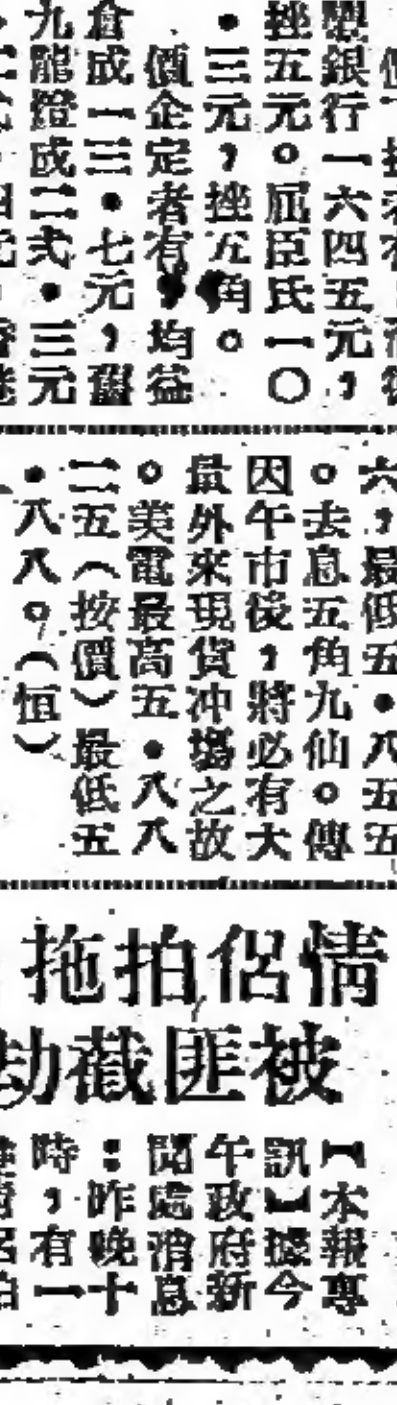 銀行一六四五元，
挫五元。屈臣氏一〇
・三元，挫五角。
價企定者有，均益
倉成一三・七元，
九龍燈成二弍・三元
六，最低五・八五五
。去息五角九仙。傳
因午市後，將必有大
量外來現貨冲場之故
。美電最高五・八八
二五（按價）最低五
・八八。（恒）
情侶拍拖
被匪截劫
【本報專
訊】據今
午政府新
聞處消息
：昨晚十
時，有一